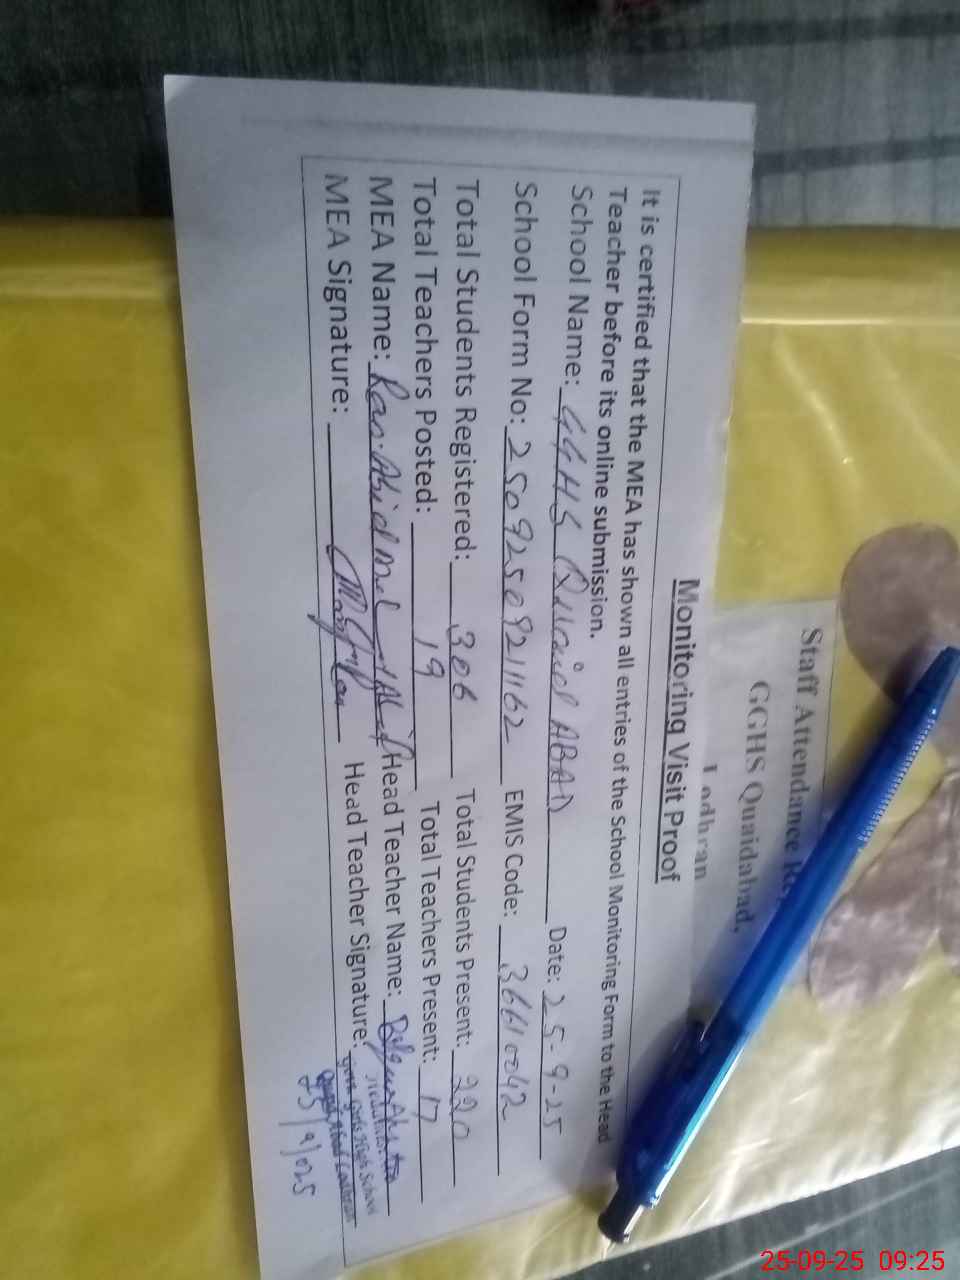 Staff Attendance Re
GGHS Quaidabad,
Lodhran
Monitoring Visit Proof
It is certified that the MEA has shown all entries of the School Monitoring Form to the Head
Teacher before its online submission.
School Name: GGHS Quaid ABAD Date: 25-9-25
School Form No: 25092509211162 EMIS Code: 36610042
Total Students Registered: 306 Total Students Present: 220
Total Teachers Posted: 19 Total Teachers Present: 17
MEA Name: Rao Abid Head Teacher Name:
MEA Signature: Head Teacher Signature:
Girls High School
Lodhran
25/9/025
25-09-25 09:25